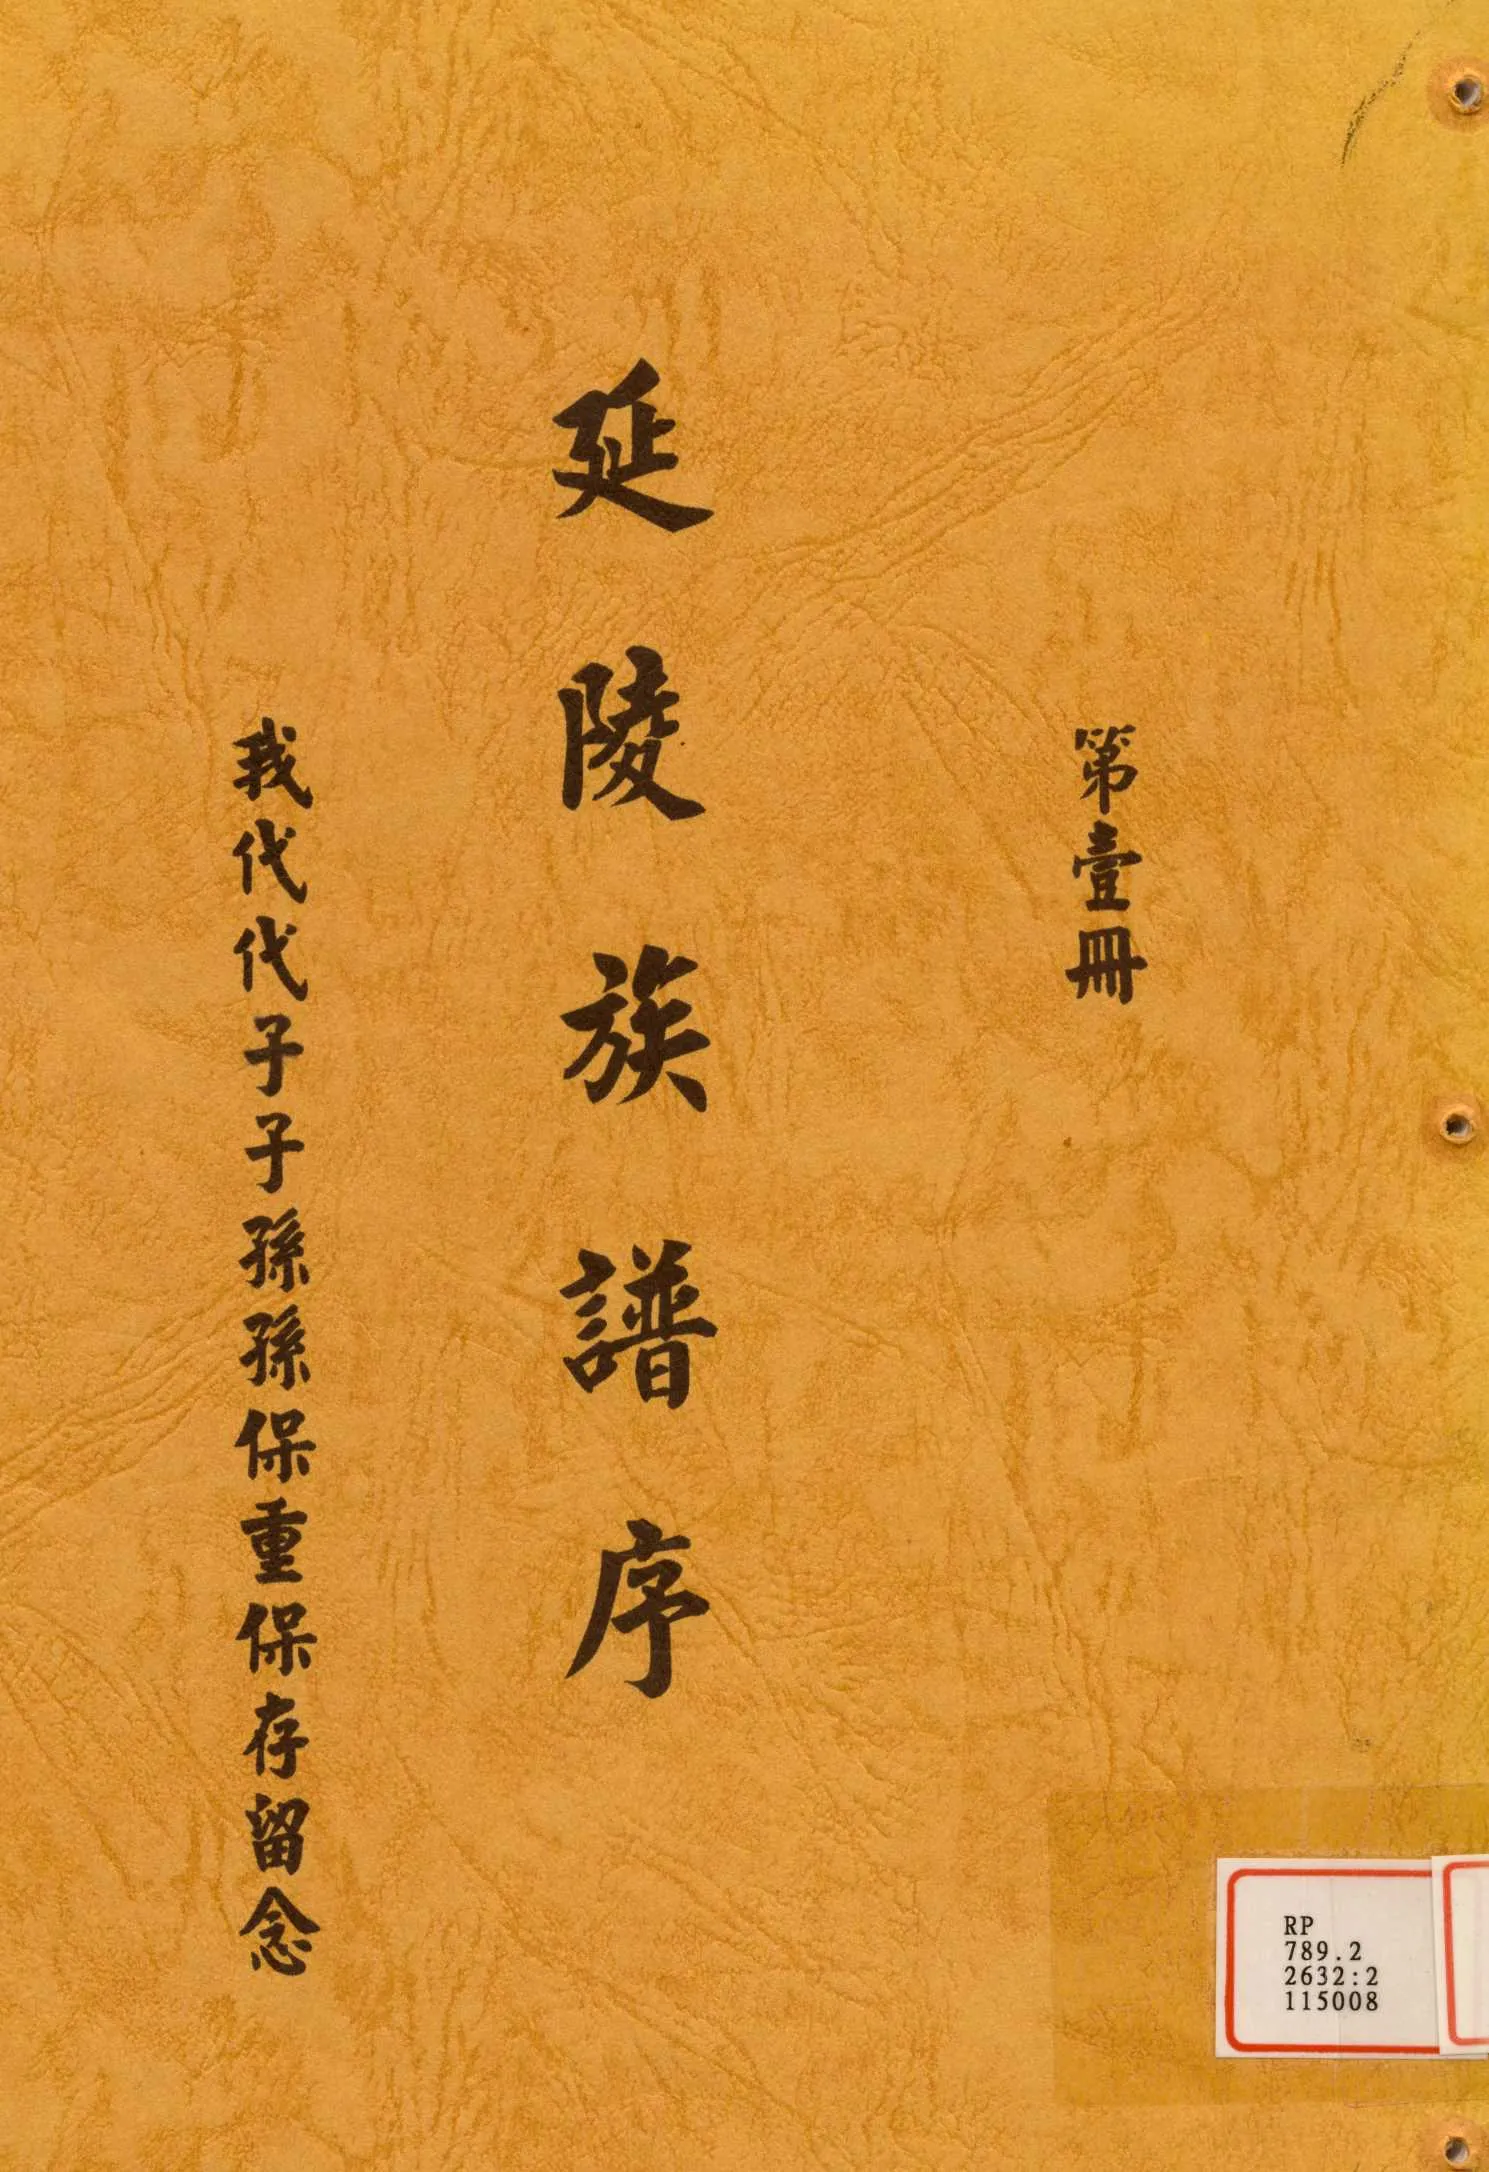 第壹冊
延陵族譜序
我代代子子孫孫保重保存留念
RP
789.2
2632:2
115008